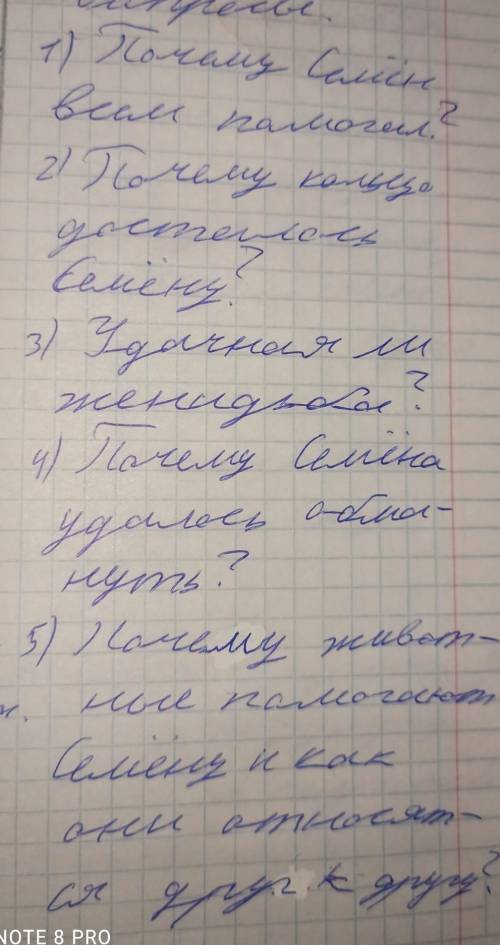 вопросы.
1) Почему Семён
всем помогал?
2) Почему кольцо
досталось
Семёну?
3) Удачная ли
женидьба?
4) Почему Семёна
удалось обма-
нуть?
5) Почему живот-
ные помогают
Семёну и как
они относят-
ся друг к другу?
NOTE 8 PRO